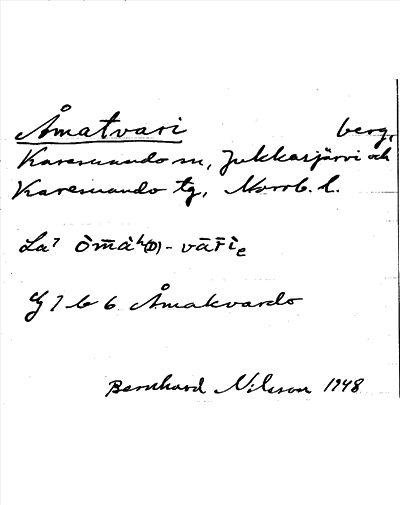 Åmatvari berg,
Karesuando sn, Jukkasjärvi och
Karesuando tg, Norrb. l.
La⁷ ò̄m̄àʰ(D)-vār̄ìe
G 7 b 6 Åmakvardo
Bernhard Nilsson 1948